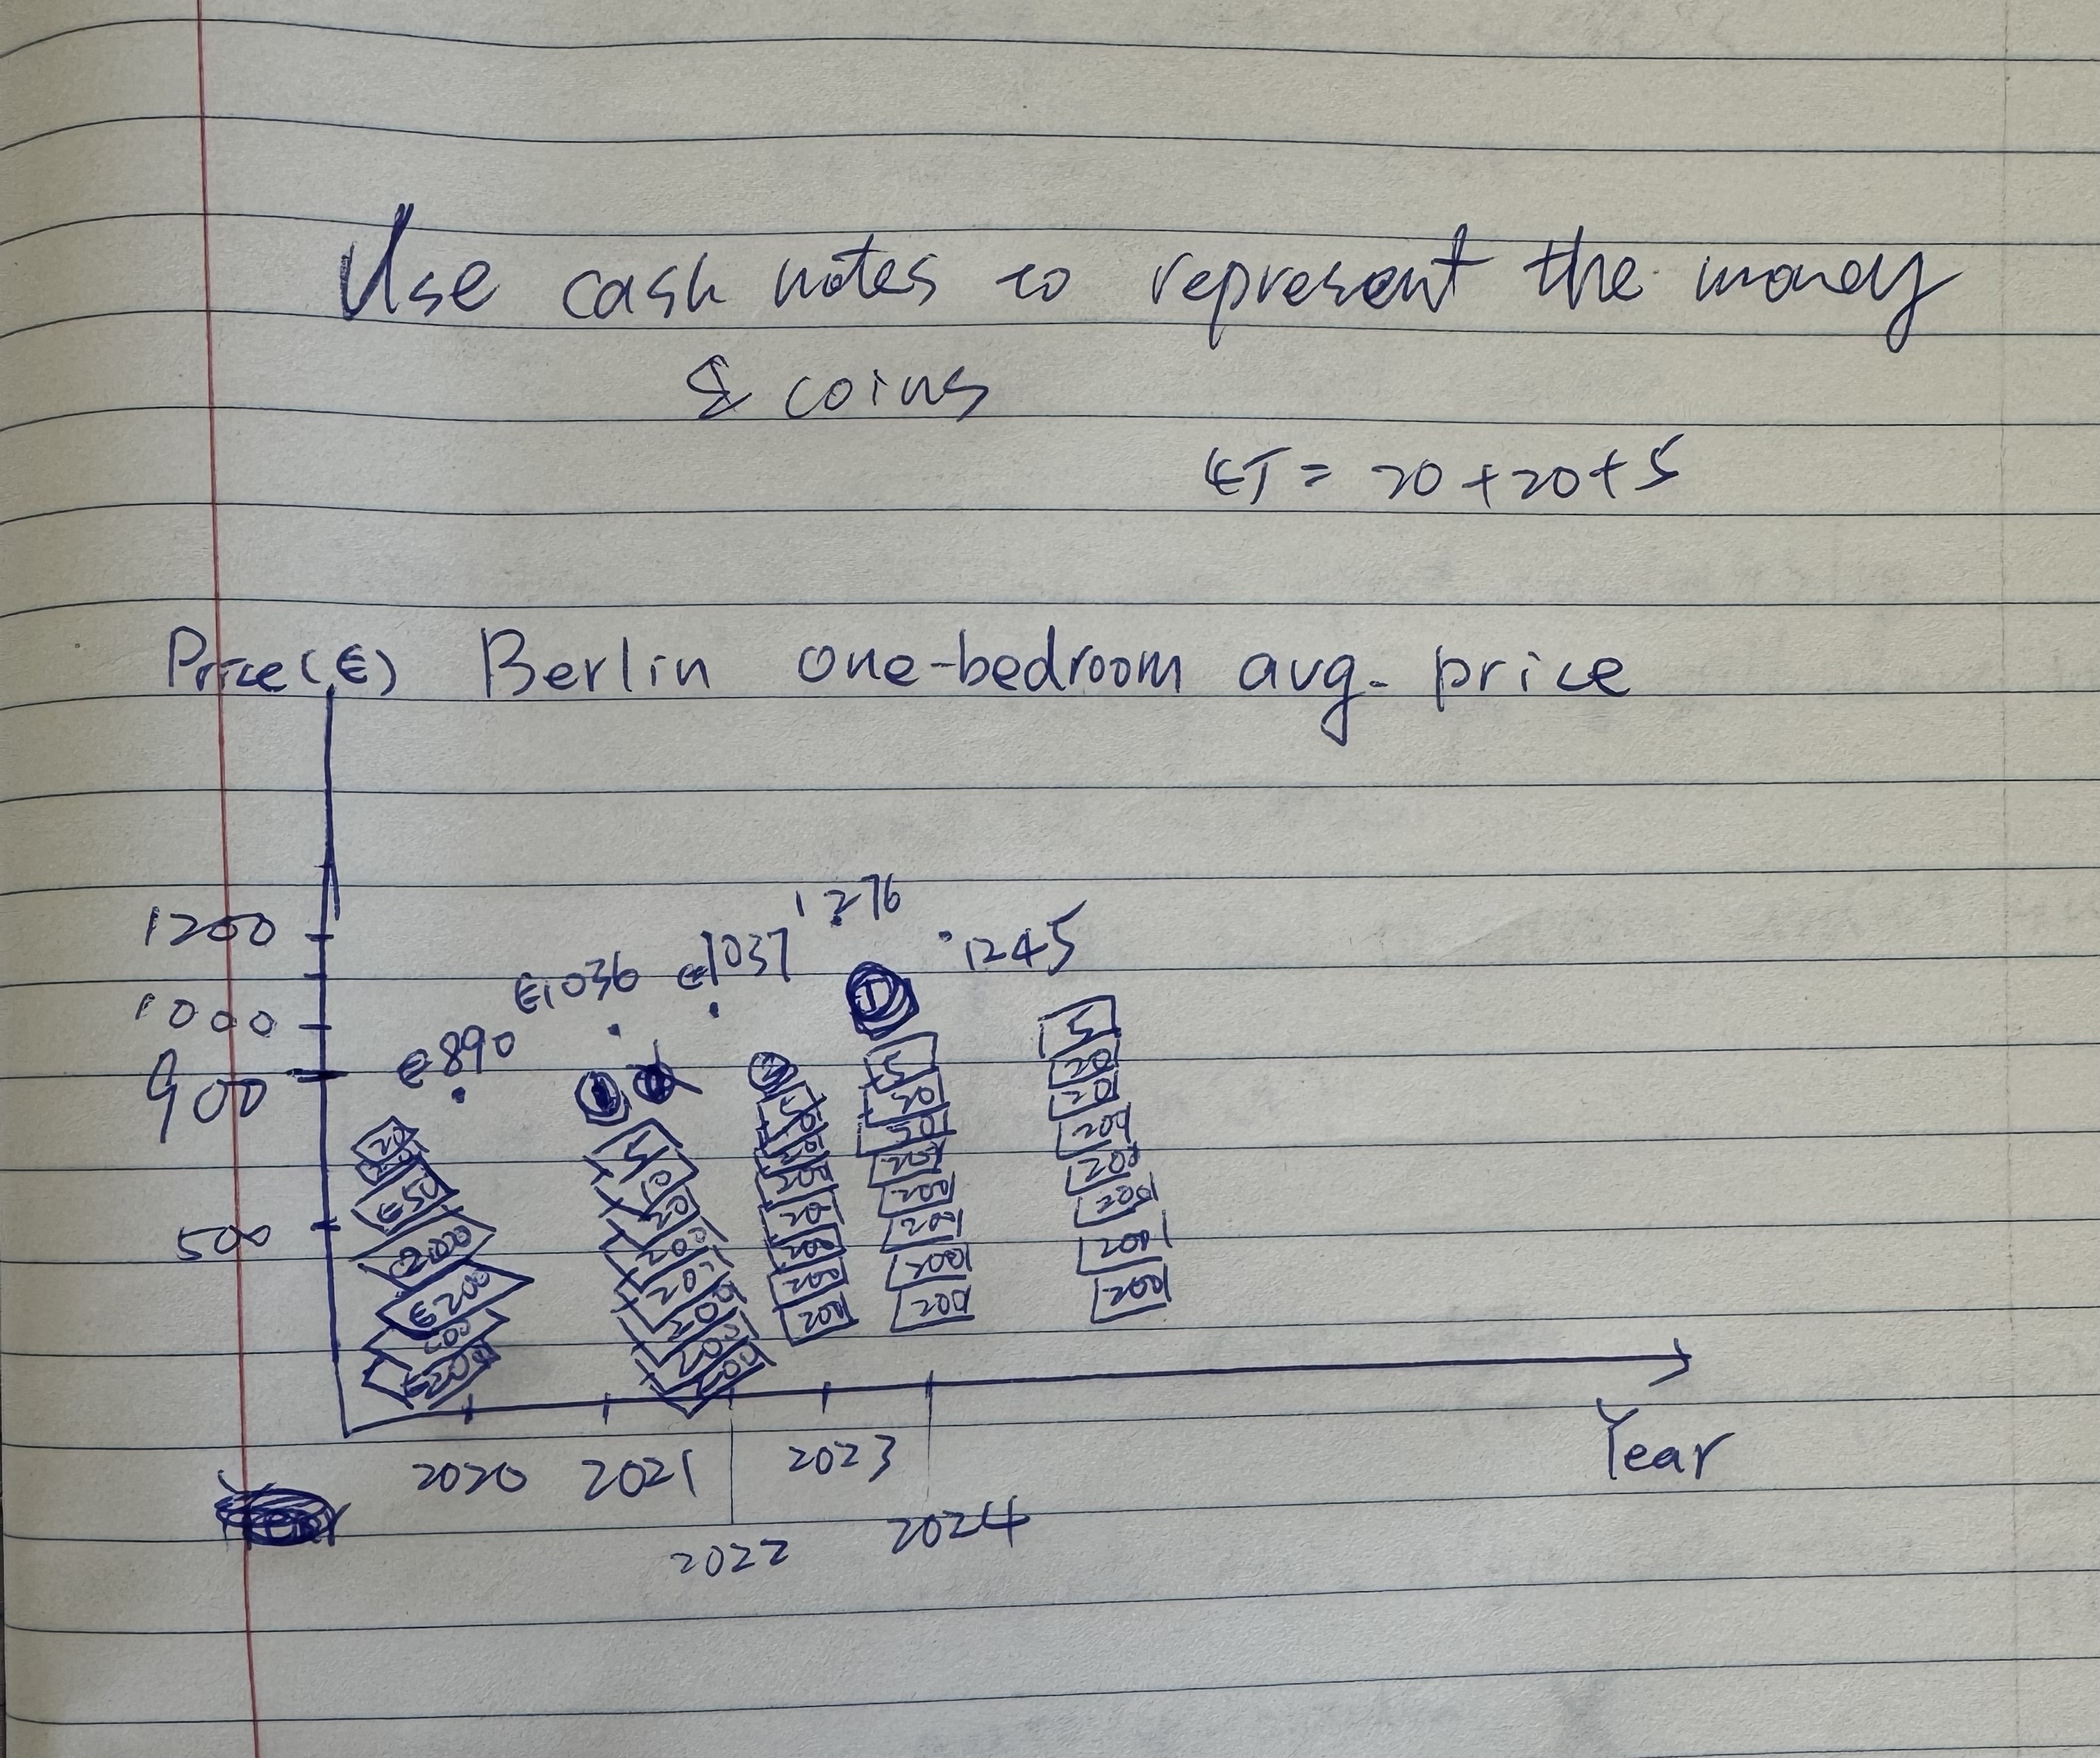 Use cash notes to represent the money
& coins
= 20 + 20 + 5
Price (€) Berlin one-bedroom avg. price
1200
1000
900
500
€890
€1036
€1037
1276
1245
20
€50
200
€200
200
€200
5
10
20
200
200
200
200
200
2
5
10
20
200
20
200
200
200
1
5
20
50
200
200
200
200
200
5
20
20
200
200
200
200
200
2020 2021 2023
2022 2024
Year